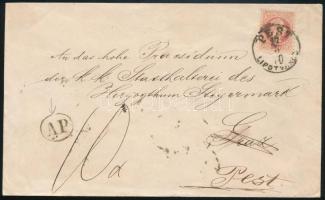 An das hohe Praesidium
der k. k. Statthalterei des
Herzogthum Steyermark
Graz
Pest
AP
10
PEST
LIPOTVÁROS